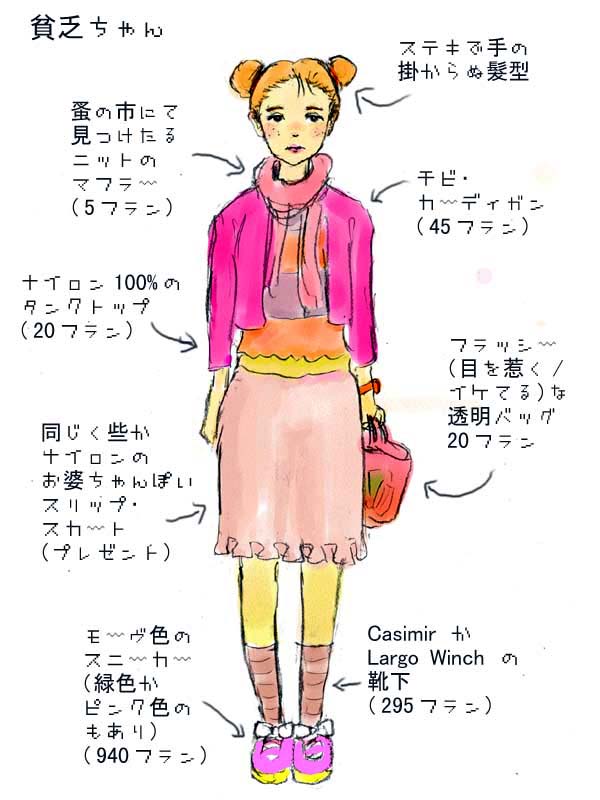 貧乏ちゃん
ステキで手の
掛からぬ髪型
蚤の市にて
見つけたる
ニットの
マフラー
(5フラン)
チビ・
カーディガン
(45フラン)
ナイロン100%の
タンクトップ
(20フラン)
フラッシー
(目を惹く/
イケてる)な
透明バッグ
20フラン
同じく些か
ナイロンの
お婆ちゃんぽい
スリップ・
スカート
(プレゼント)
モーヴ色の
スニーカー
(緑色か
ピンク色の
もあり)
(940フラン)
Casimir か
Largo Winch の
靴下
(295フラン)